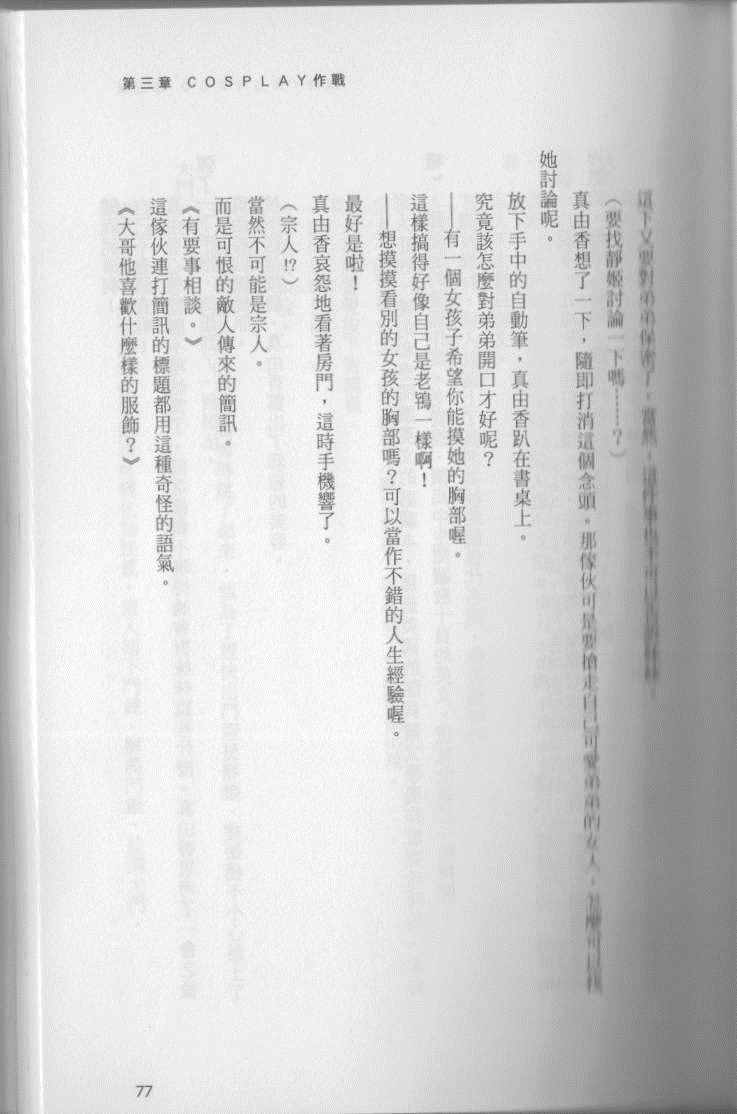 第三章 COSPLAY作戰
這下又要對弟弟保密了。當然，這件事
（要找靜姬討論一下嗎……？）
真由香想了一下，隨即打消這個念頭。那傢伙可是要搶走自己可愛弟弟的女人，怎麼可以找
她討論呢。
放下手中的自動筆，真由香趴在書桌上。
究竟該怎麼對弟弟開口才好呢？
——有一個女孩子希望你能摸她的胸部喔。
這樣搞得好像自己是老鴇一樣啊！
——想摸摸看別的女孩的胸部嗎？可以當作不錯的人生經驗喔。
最好是啦！
真由香哀怨地看著房門，這時手機響了。
（宗人!?）
當然不可能是宗人。
而是可恨的敵人傳來的簡訊。
《有要事相談。》
這傢伙連打簡訊的標題都用這種奇怪的語氣。
《大哥他喜歡什麼樣的服飾？》
77